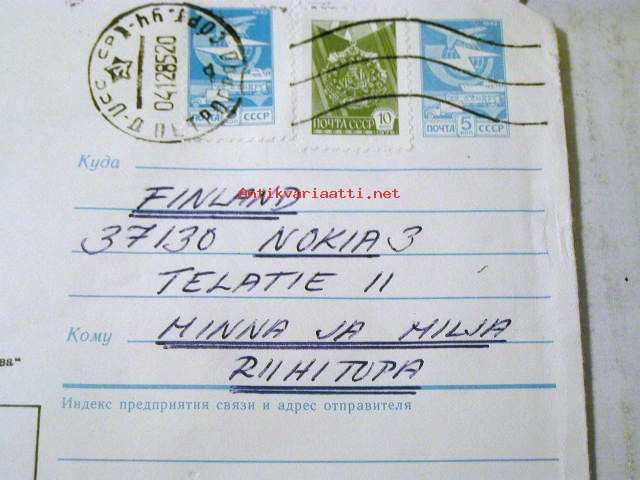 СССР
04128520
ПОЧТА СССР
10 коп
ПОЧТА 5 коп СССР
Куда
FINLAND
antikvariaatti.net
37130 NOKIA 3
TELATIE 11
Кому
MINNA JA MILJA
RIIHITUPA
ва"
Индекс предприятия связи и адрес отправителя